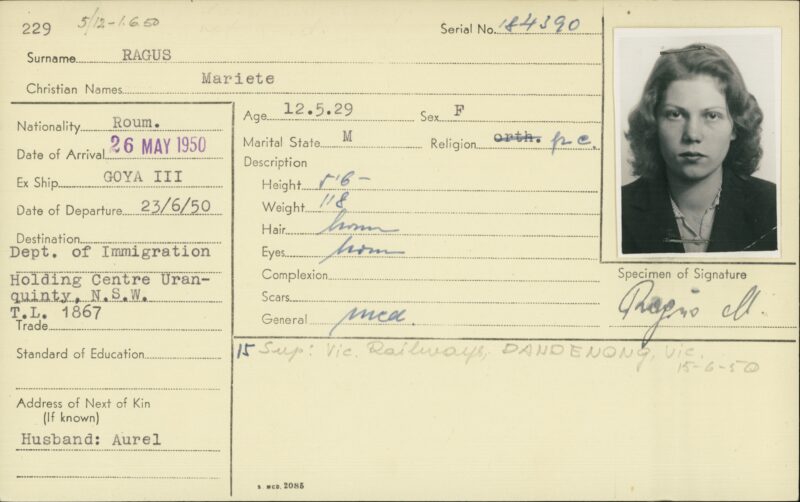 229 5/12-1.6.50 Serial No. 184390
Surname RAGUS
Christian Names Mariete
Nationality Roum.
Date of Arrival 26 MAY 1950
Ex Ship GOYA III
Date of Departure 23/6/50
Destination
Dept. of Immigration
Holding Centre Uran-
quinty, N.S.W.
T.L. 1867
Trade
Standard of Education
Address of Next of Kin
(If known)
Husband: Aurel
Age 12.5.29 Sex F
Marital State M Religion orth. p.c.
Description
Height 5'6-
Weight 118
Hair brown
Eyes brown
Complexion
Scars
General med.
Specimen of Signature
Ragus M.
15 Sup: Vic. Railways, DANDENONG, Vic.
15-6-50
S. MCD. 2085